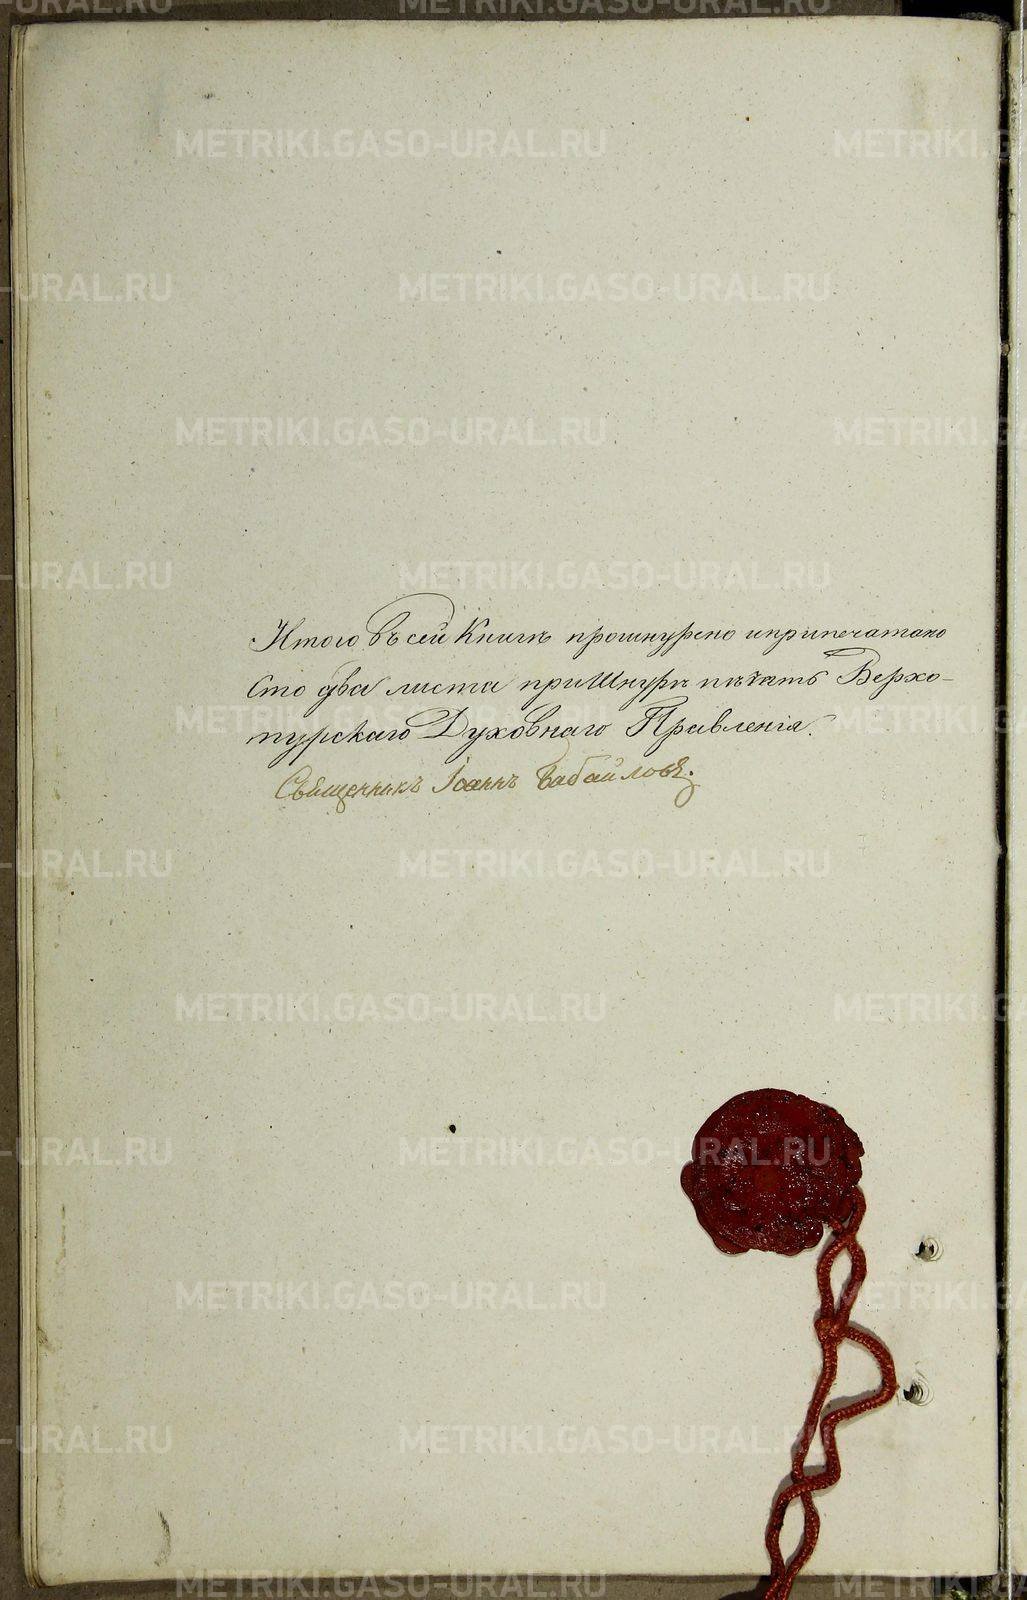 Итого въ сей Книгѣ прошнурено и припечатано
Сто два листа при Шнурѣ печать Верхо-
турскаго Духовнаго Правленія.
Священникъ Іоаннъ Бабайловъ.
METRIKI.GASO-URAL.RU